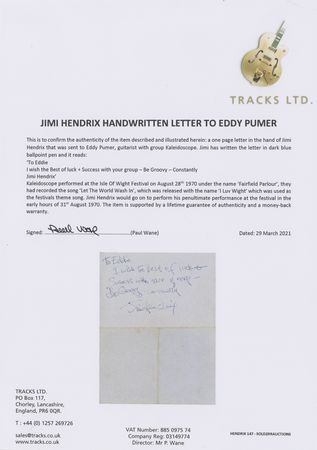 TRACKS LTD.
JIMI HENDRIX HANDWRITTEN LETTER TO EDDY PUMER
This is to confirm the authenticity of the item described and illustrated herein: a one page letter in the hand of Jimi
Hendrix that was sent to Eddy Pumer, guitarist with group Kaleidoscope. Jimi has written the letter in dark blue
ballpoint pen and it reads:
'To Eddie
I wish the Best of luck + Success with your group – Be Groovy – Constantly
Jimi Hendrix'
Kaleidoscope performed at the Isle Of Wight Festival on August 28th 1970 under the name 'Fairfield Parlour', they
had recorded the song 'Let The World Wash In', which was released with the name 'I Luv Wight' which was used as
the festivals theme song. Jimi Hendrix would go on to perform his penultimate performance at the festival in the
early hours of 31st August 1970. The item is supported by a lifetime guarantee of authenticity and a money-back
warranty.
Signed: (Paul Wane) Dated: 29 March 2021
To Eddie
I wish the Best of luck +
Success with your group –
Be Groovy – Constantly
Jimi Hendrix
TRACKS LTD.
PO Box 117,
Chorley, Lancashire,
England, PR6 0QR.
T : +44 (0) 1257 269726
sales@tracks.co.uk
www.tracks.co.uk
VAT Number: 885 0975 74
Company Reg: 03149774
Director: Mr P. Wane
HENDRIX 147 - SOULDERAUCTIONS